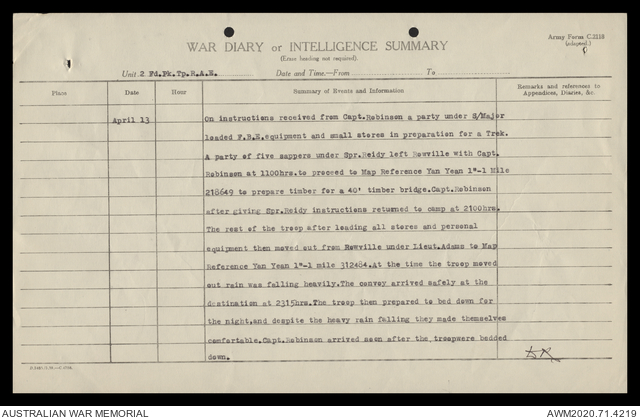 WAR DIARY or INTELLIGENCE SUMMARY
Army Form C.2118
(adapted.)
(Erase heading not required).
Unit 2 Fd.Pk.Tp.R.A.E. Date and Time.—From To
Place Date Hour Summary of Events and Information Remarks and references to
Appendices, Diaries, &c.
April 13 On instructions received from Capt.Robinson a party under S/Major
loaded F.B.E.equipment and small stores in preparation for a Trek.
A party of five sappers under Spr.Reidy left Rowville with Capt.
Robinson at 1100hrs.to proceed to Map Reference Yan Yean 1"-1 Mile
218649 to prepare timber for a 40' timber bridge.Capt.Robinson
after giving Spr.Reidy instructions returned to camp at 2100hrs.
The rest of the troop after loading all stores and personal
equipment then moved out from Rowville under Lieut.Adams to Map
Reference Yan Yean 1"-1 mile 312464.At the time the troop moved
out rain was falling heavily.The convoy arrived safely at the
destination at 2315hrs.The troop then prepared to bed down for
the night.and despite the heavy rain falling they made themselves
comfortable.Capt.Robinson arrived soon after the troopwere bedded
down.
AUSTRALIAN WAR MEMORIAL
AWM2020.71.4219